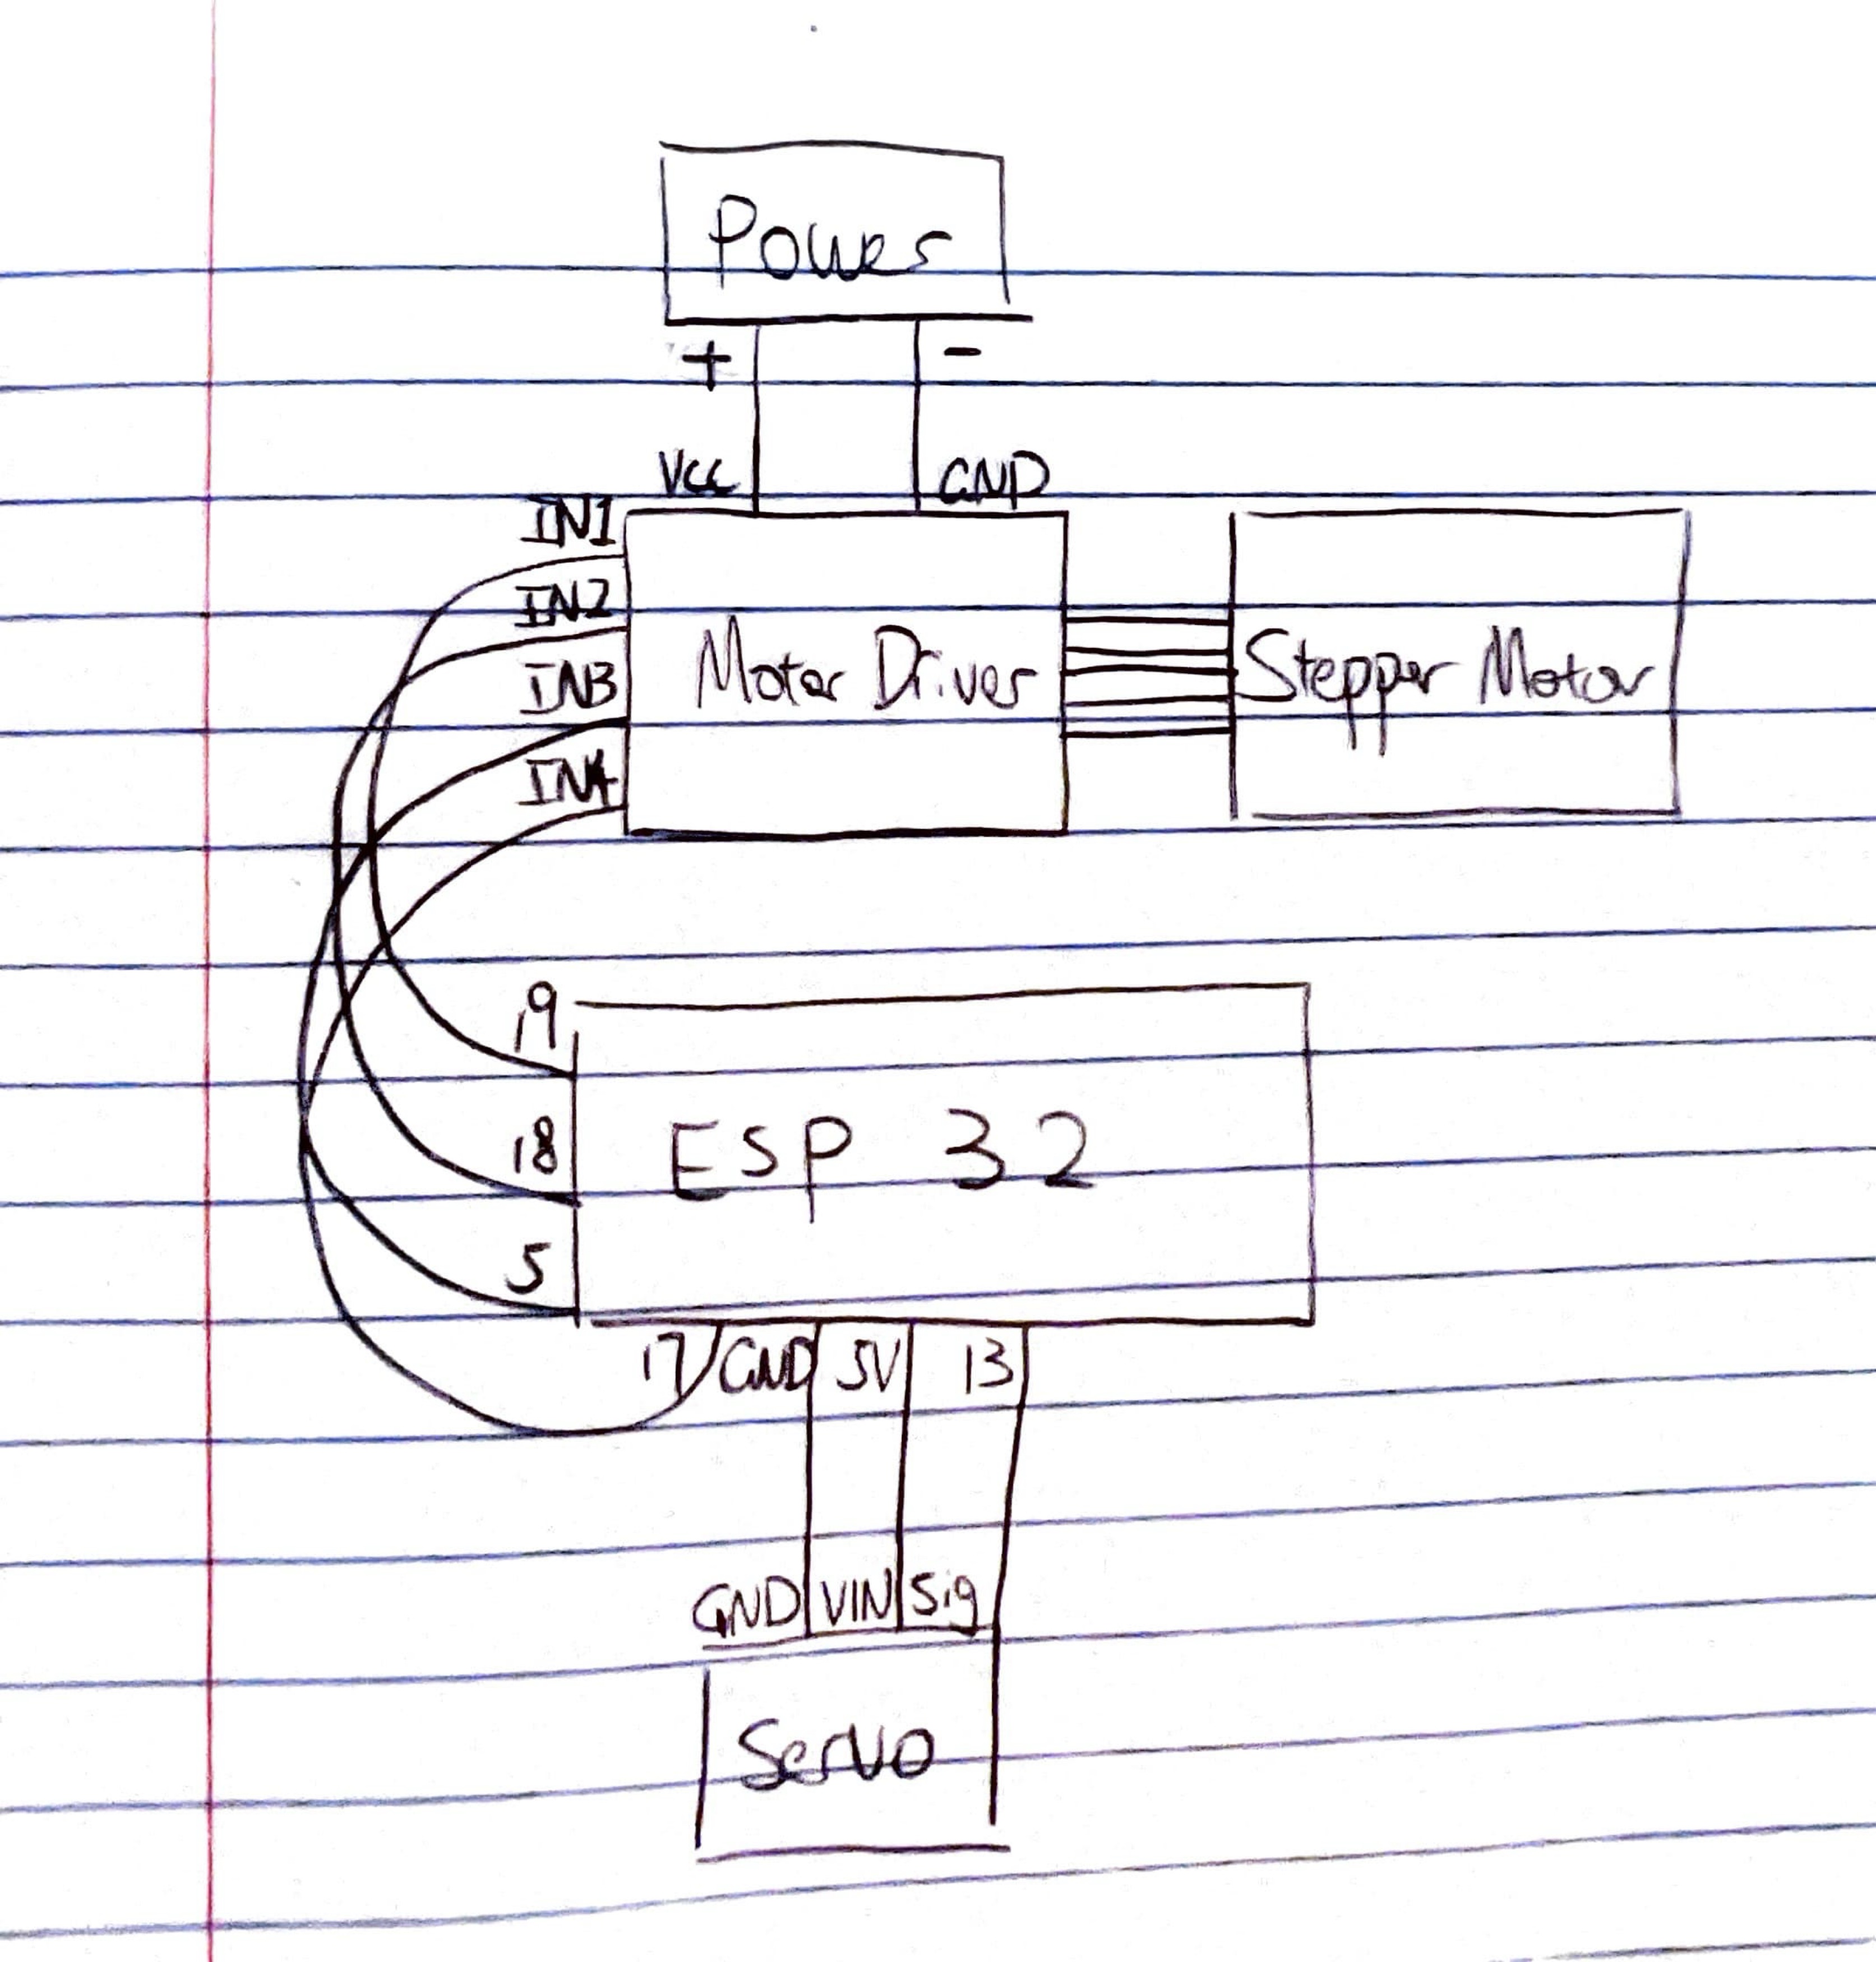 Power
+ -
VCC GND
IN1
IN2
IN3
IN4
Motor Driver
Stepper Motor
19
18
5
ESP 32
17 GND 5V 13
GND VIN Sig
Servo